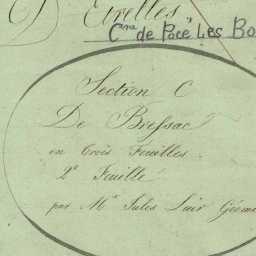 D'Étrelles
Cne de Pocé Les Bo
Section C
De Bressac
en trois Feuilles.
2e Feuille
par Mr Jules Luir Géom